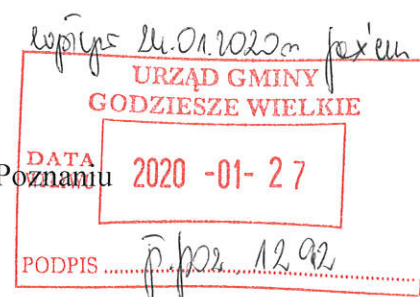 wpłynęło 24.01.2020r fax'em
URZĄD GMINY
GODZIESZE WIELKIE
DATA
Poznaniu
2020 -01- 27
PODPIS
p.poz 1292